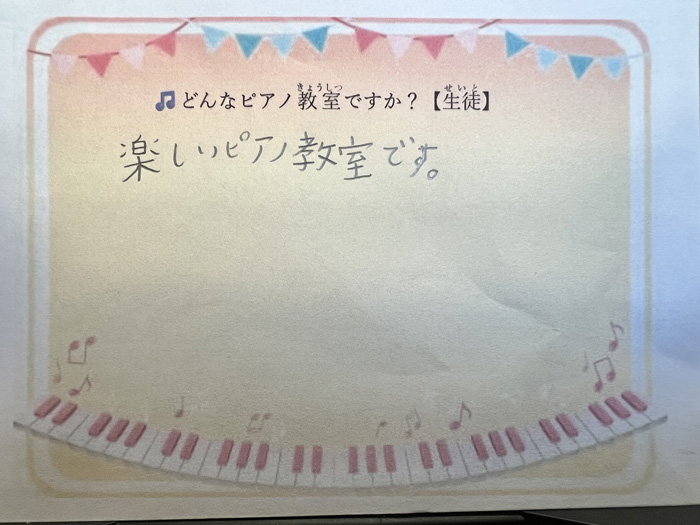 🎵どんなピアノ教室ですか？【生徒】
楽しいピアノ教室です。